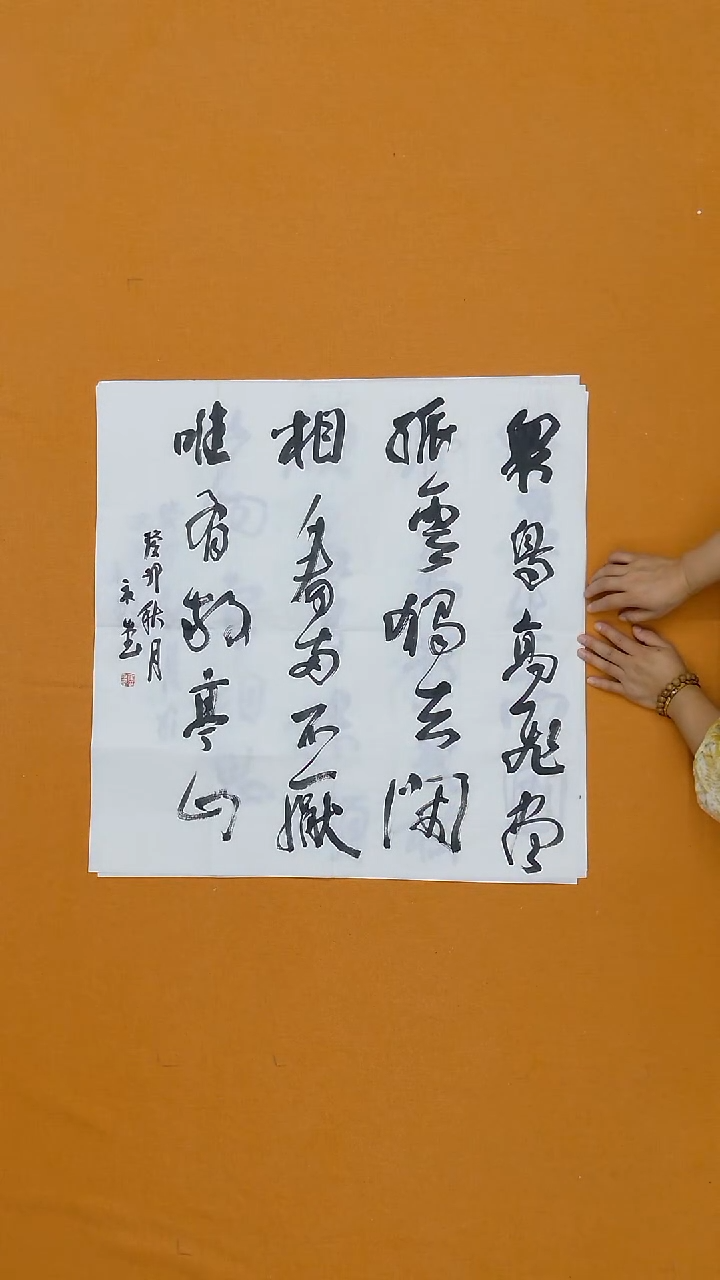 眾鳥高飛盡
孤雲獨去閑
相看兩不厭
唯有敬亭山
癸卯秋月